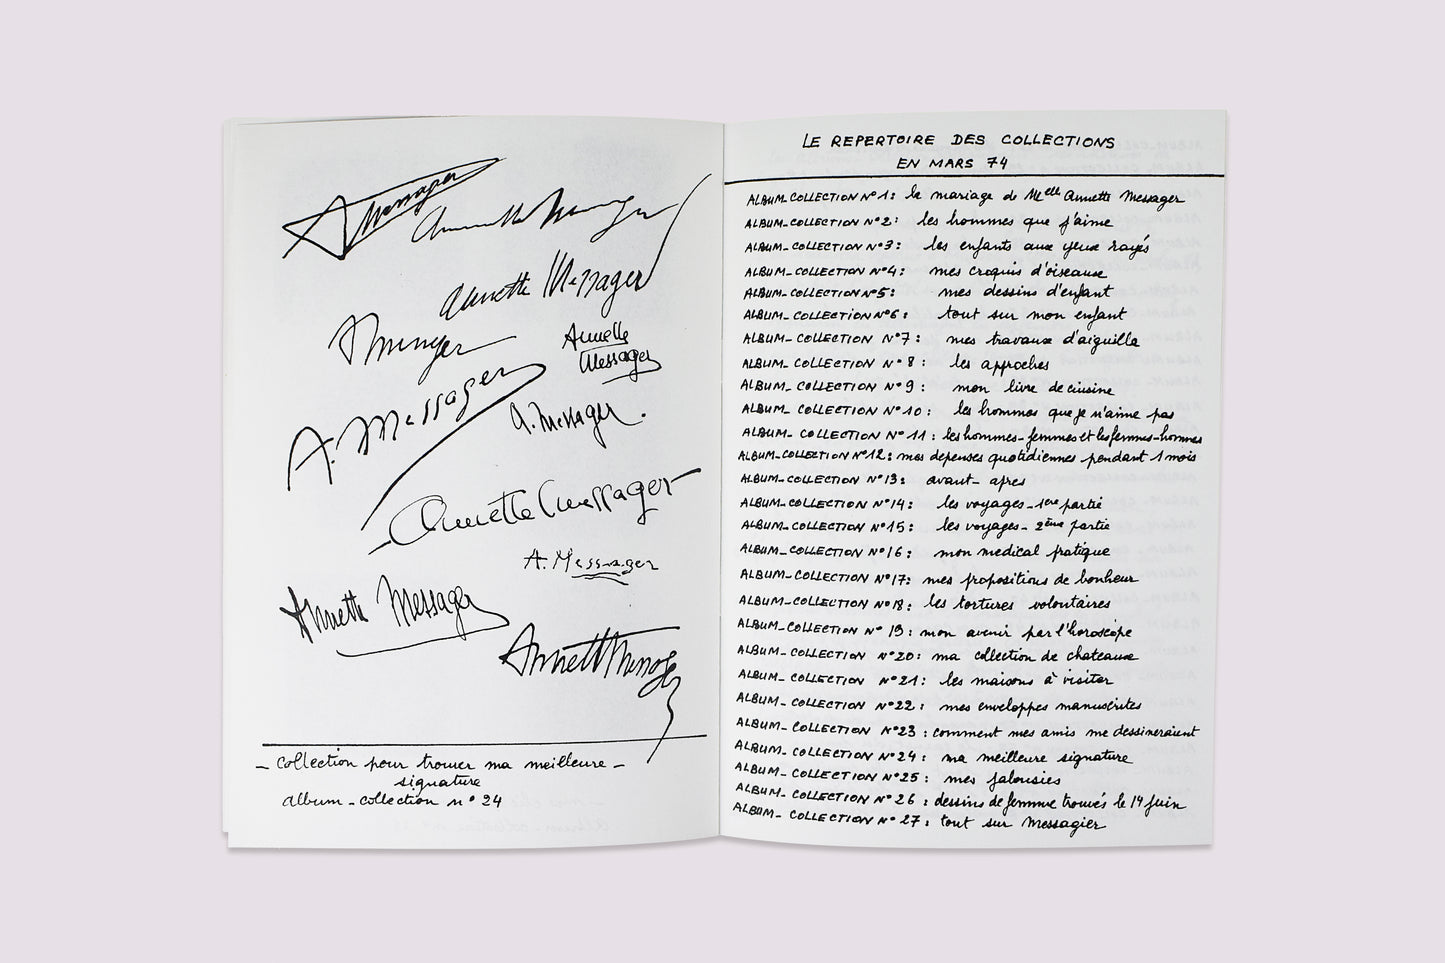 A Messager
Annette Messager
Annette Messager
A Messager
Annette
Messager
A. Messager
A. Messager.
Annette Messager
A. Messager
Annette Messager
Annette Messager
_ collection pour trouver ma meilleure _
signature
album _ collection n° 24
LE REPERTOIRE DES COLLECTIONS
EN MARS 74
ALBUM_ COLLECTION N°1: le mariage de Melle Annette Messager
ALBUM_ COLLECTION N°2: les hommes que j'aime
ALBUM_ COLLECTION N°3: les enfants aux yeux rayés
ALBUM_ COLLECTION N°4: mes croquis d'oiseaux
ALBUM_ COLLECTION N°5: mes dessins d'enfant
ALBUM_ COLLECTION N°6: tout sur mon enfant
ALBUM_ COLLECTION N°7: mes travaux d'aiguille
ALBUM_ COLLECTION N°8: les approches
ALBUM_ COLLECTION N°9: mon livre de cuisine
ALBUM_ COLLECTION N°10: les hommes que je n'aime pas
ALBUM_ COLLECTION N°11: les hommes-femmes et les femmes-hommes
ALBUM_ COLLECTION N°12: mes depenses quotidiennes pendant 1 mois
ALBUM_ COLLECTION N°13: avant_ apres
ALBUM_ COLLECTION N°14: les voyages_ 1ere partie
ALBUM_ COLLECTION N°15: les voyages_ 2ème partie
ALBUM_ COLLECTION N°16: mon medical pratique
ALBUM_ COLLECTION N°17: mes propositions de bonheur
ALBUM_ COLLECTION N°18: les tortures volontaires
ALBUM_ COLLECTION N°19: mon avenir par l'horoscope
ALBUM_ COLLECTION N°20: ma collection de chateaux
ALBUM_ COLLECTION N°21: les maisons à visiter
ALBUM_ COLLECTION N°22: mes enveloppes manuscrites
ALBUM_ COLLECTION N°23: comment mes amis me dessineraient
ALBUM_ COLLECTION N°24: ma meilleure signature
ALBUM_ COLLECTION N°25: mes jalousies
ALBUM_ COLLECTION N°26: dessins de femme trouvés le 14 juin
ALBUM_ COLLECTION N°27: tout sur Messagier